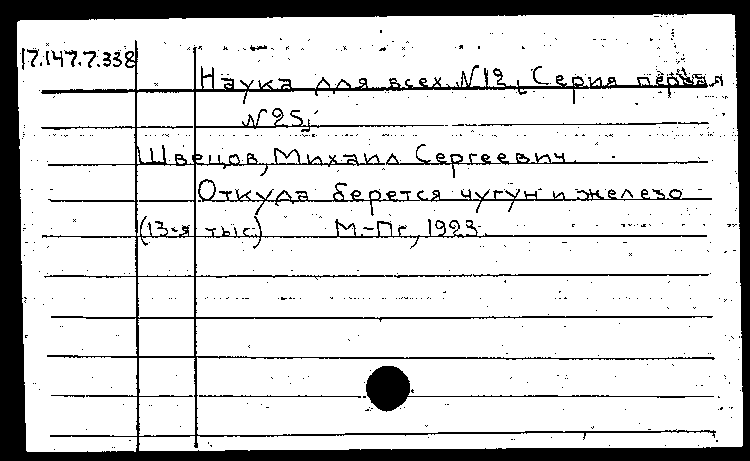 17.147.7.338
Наука для всех. №12, Серия первая
№25;
Швецов, Михаил Сергеевич.
Откуда берется чугун и железо
(13-я тыс) М.-Пг, 1923.